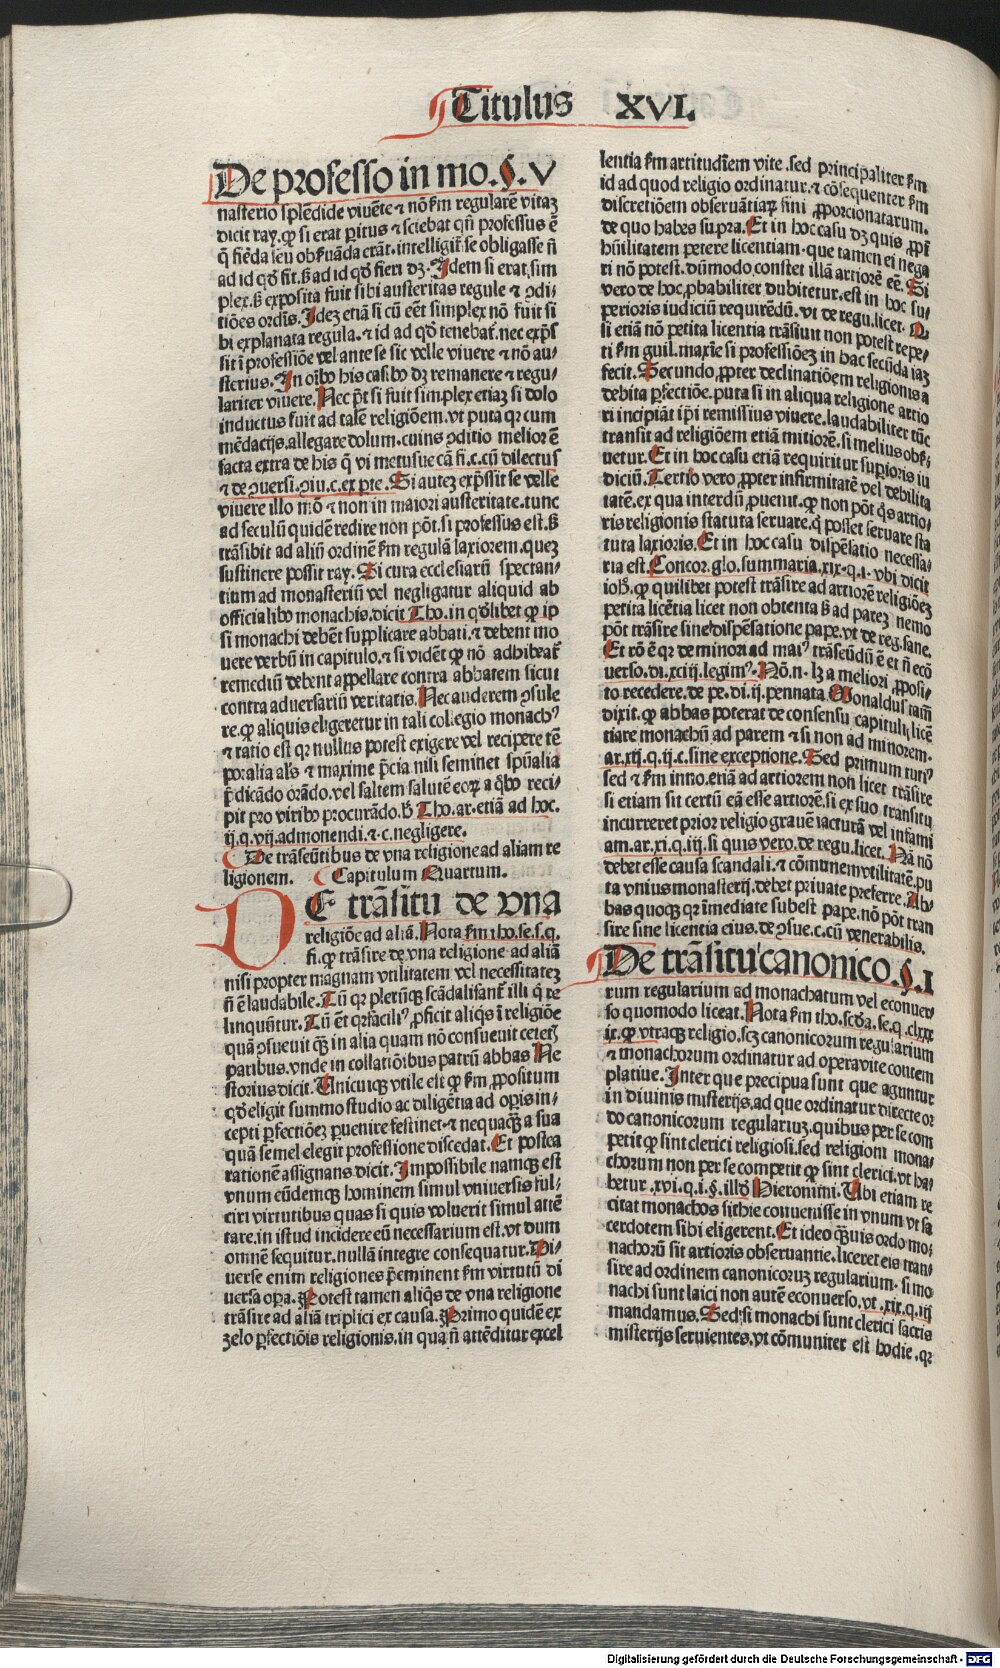 Titulus XVI.
De professo in mo. §. V
nasterio splēdide viuēte ⁊ nō ẜm regularē vitaꝫ
dicit ray. ꝙ si erat peritus ⁊ sciebat qn̄ professus ē
q̄ siēda seu obẜuāda erāt. intelligit̄ se obligasse nō
ad id qđ fit. ẜꝫ ad id qđ fieri dꝫ. Idem si erat sim
plex. ẜꝫ exposita fuit sibi austeritas regule ⁊ ꝯdi-
tiōes ordīs. Idēꝫ etiā si cū eēt simplex nō fuit si
bi explanata regula. ⁊ id ad qđ tenebat̄. nec exps̄
sit ī professiōe vel ante se sic velle viuere ⁊ nō au-
sterius. In oībꝰ his casibꝰ dꝫ remanere ⁊ regu-
lariter viuere. Nec pt̄ si fuit simplex etiaꝫ si dolo
inductus fuit ad talē religiōem. vt puta qꝛ cum
mēdacijs. allegare dolum. cuius ꝯditio melior ē
facta extra de his q̄ vi metusue cā fi. c. cū dilectus
⁊ de ꝯuersi. ꝯiu. c. ex pte. Si auteꝫ exp̄ssit se velle
viuere illo mō ⁊ non in maiori austeritate. tunc
ad seculū quidē redire non pōt. si professus est. ẜꝫ
trāsibit ad aliū ordinē ẜm regulā laxiorem. quez
sustinere possit ray. Si cura ecclesiarū spectan-
tium ad monasteriū vel negligatur aliquid ab
officialibꝰ monachis. dicit Tho. in qđlibet ꝙ ip
si monachi debēt supplicare abbati. ⁊ debent mo
uere verbū in capitulo. ⁊ si vidēt ꝙ nō adhibeat̄
remediū debent appellare contra abbatem sicut
contra aduersariū veritatis. Nec auderem ꝯsule
re. ꝙ aliquis eligeretur in tali collegio monachꝰ
⁊ ratio est qꝛ nullus potest exigere vel recipere tē
poralia als̄ ⁊ maxime p̄cia nisi seminet spūalia
p̄dicādo orādo. vel saltem salutē eoꝝ a q̄bꝰ reci-
pit pro viribꝰ procurādo. hꝫ Tho. ar. etiā ad hoc.
ij. q. vij. admonendi. ⁊ c. negligere.
De trāseūtibus de vna religione ad aliam re
ligionem. Capitulum Quartum.
DE trāsitu de vna
religiōe ad aliā. Nota ẜm tho. se. s. q.
fi. ꝙ trāsire de vna religione ad aliā
nisi propter magnam vtilitatem vel necessitateꝫ
nō ē laudabile. Tū qꝛ pleruꝫqꝫ scādalisant̄ illi q̄ re
linquūtur. Tū ēt qꝛ faciliꝰ ꝓficit aliqs̄ ī religiōe
quā ꝯsueuit qꝫ̄ in alia quam nō consueuit ceteris
paribus. vnde in collatiōibus patrū abbas Ne
storius dicit. Unicuiqꝫ vtile est ꝙ ẜm ꝓpositum
qđ eligit summo studio ac diligētia ad opis in-
cepti p̄fectiōeꝫ p̄uenire festinet. ⁊ nequaqꝫ̄ a sua
quā semel elegit professione discedat. Et postea
rationē assignans dicit. Impossibile namqꝫ est
vnum eūdemqꝫ hominem simul vniuersis ful-
ciri virtutibus quas si quis voluerit simul attē
tare. in istud incidere eū necessarium est. vt dum
omnē sequitur. nullā integre consequatur. Di-
uerse enim religiones p̄eminent ẜm virtutū di
uersa opa. Potest tamen aliqs̄ de vna religione
trāsire ad aliā triplici ex causa. Primo quidē ex
zelo pfectiōis religionis. in qua nō attēditur excel
lentia ẜm artitudīem vite. sed principaliter ẜm
id ad quod religio ordinatur. ⁊ cōsequenter ẜm
discretiōem obseruātiaꝝ fini ꝓporcionatarum.
de quo habes supra. Et in hoc casu dꝫ quis ꝓpt̄
hūilitatem petere licentiam. que tamen ei nega
ri nō potest. dūmodo constet illā artiorē eē. Si
vero de hoc ꝓbabiliter dubitetur. est in hoc su-
perioris iudiciū requirēdū. vt de regu. licet. Q
si etiā nō petita licentia trāsiuit non potest repe-
ti ẜm guil. maxīe si professiōeꝫ in hac secūda iaꝫ
fecit. Secundo ꝓpter declinatiōem religionis a
debita pfectiōe. puta si in aliqua religione artio
ri incipiāt ip̄i remissius viuere. laudabiliter tūc
transit ad religiōem etiā mitiorē. si melius obẜ-
uetur. Et in hoc casu etiā requiritur superioris iu
diciū. Tertio vero ꝓpter infirmitatē vel debilita
tatē. ex qua interdū ꝓuenit. ꝙ non pōt qs̄ artio-
ris religionis statuta seruare. q̄ posset seruare sta
tuta laxioris. Et in hoc casu dispēsatio necessa-
ria est. Concor. glo. summaria. xix. q. i. vbi dicit
ioh. ꝙ quilibet potest trāsire ad artiorē religiōeꝫ
petita licētia licet non obtenta ẜꝫ ad pareꝫ nemo
pōt trāsire sine dispēsatione pape. vt de reg. sane.
Et rō ē qꝛ de minori ad maiꝰ trāseūdū ē et nō ecō
uerso. di. xciij. legimꝰ. Nō. n. lꝫ a meliori ꝓposi-
to recedere. de pe. di. ij. pennata Monaldus tam̄
dixit. ꝙ abbas poterat de consensu capituli licē
tiare monachū ad parem ⁊ si non ad minorem.
ar. xij. q. ij. c. sine exceptione. Sed primum tutiꝰ
sed ⁊ ẜm inno. etiā ad artiorem non licet trāsire
si etiam sit certū eā esse artiorē. si ex suo transitu
incurreret prior religio grauē iacturā vel infami
am. ar. xi. q. iij. si quis vero. de regu. licet. Nā nō
debet esse causa scandali. ⁊ cōmunem vtilitatē. pu
ta vnius monasterij. debet priuate preferre. Ab-
bas quoqꝫ qꝛ īmediate subest pape. nō pōt tran
sire sine licentia eius. de ꝯsue. c. cū venerabilis.
De trāsitu canonico. §. I
rum regularium ad monachatum vel econuer
so quomodo liceat. Nota ẜm tho. scđa. se. q. clxxx
ix. ꝙ vtraqꝫ religio. scꝫ canonicorum regularium
⁊ monachorum ordinatur ad opera vite contem
platiue. Inter que precipua sunt que aguntur
in diuinis misterijs. ad que ordinatur directe or
do canonicorum regulariuꝫ. quibus per se com
petit ꝙ sint clerici religiosi. sed religioni mona-
chorum non per se competit ꝙ sint clerici. vt ha-
betur. xvi. q. i. §. illđ Hieronimi. Ubi etiam re
citat monachos sithie conuenisse in vnum vt sa
cerdotem sibi eligerent. Et ideo qꝫ̄uis ordo mo-
nachorū sit artioris obseruantie. liceret eis tran-
sire ad ordinem canonicoruꝫ regularium. si mo
nachi sunt laici non autē econuerso. vt. xix. q. iij
mandamus. Sed si monachi sunt clerici sacris
misterijs seruientes. vt cōmuniter est hodie. qꝛ
Digitalisierung gefördert durch die Deutsche Forschungsgemeinschaft - DFG